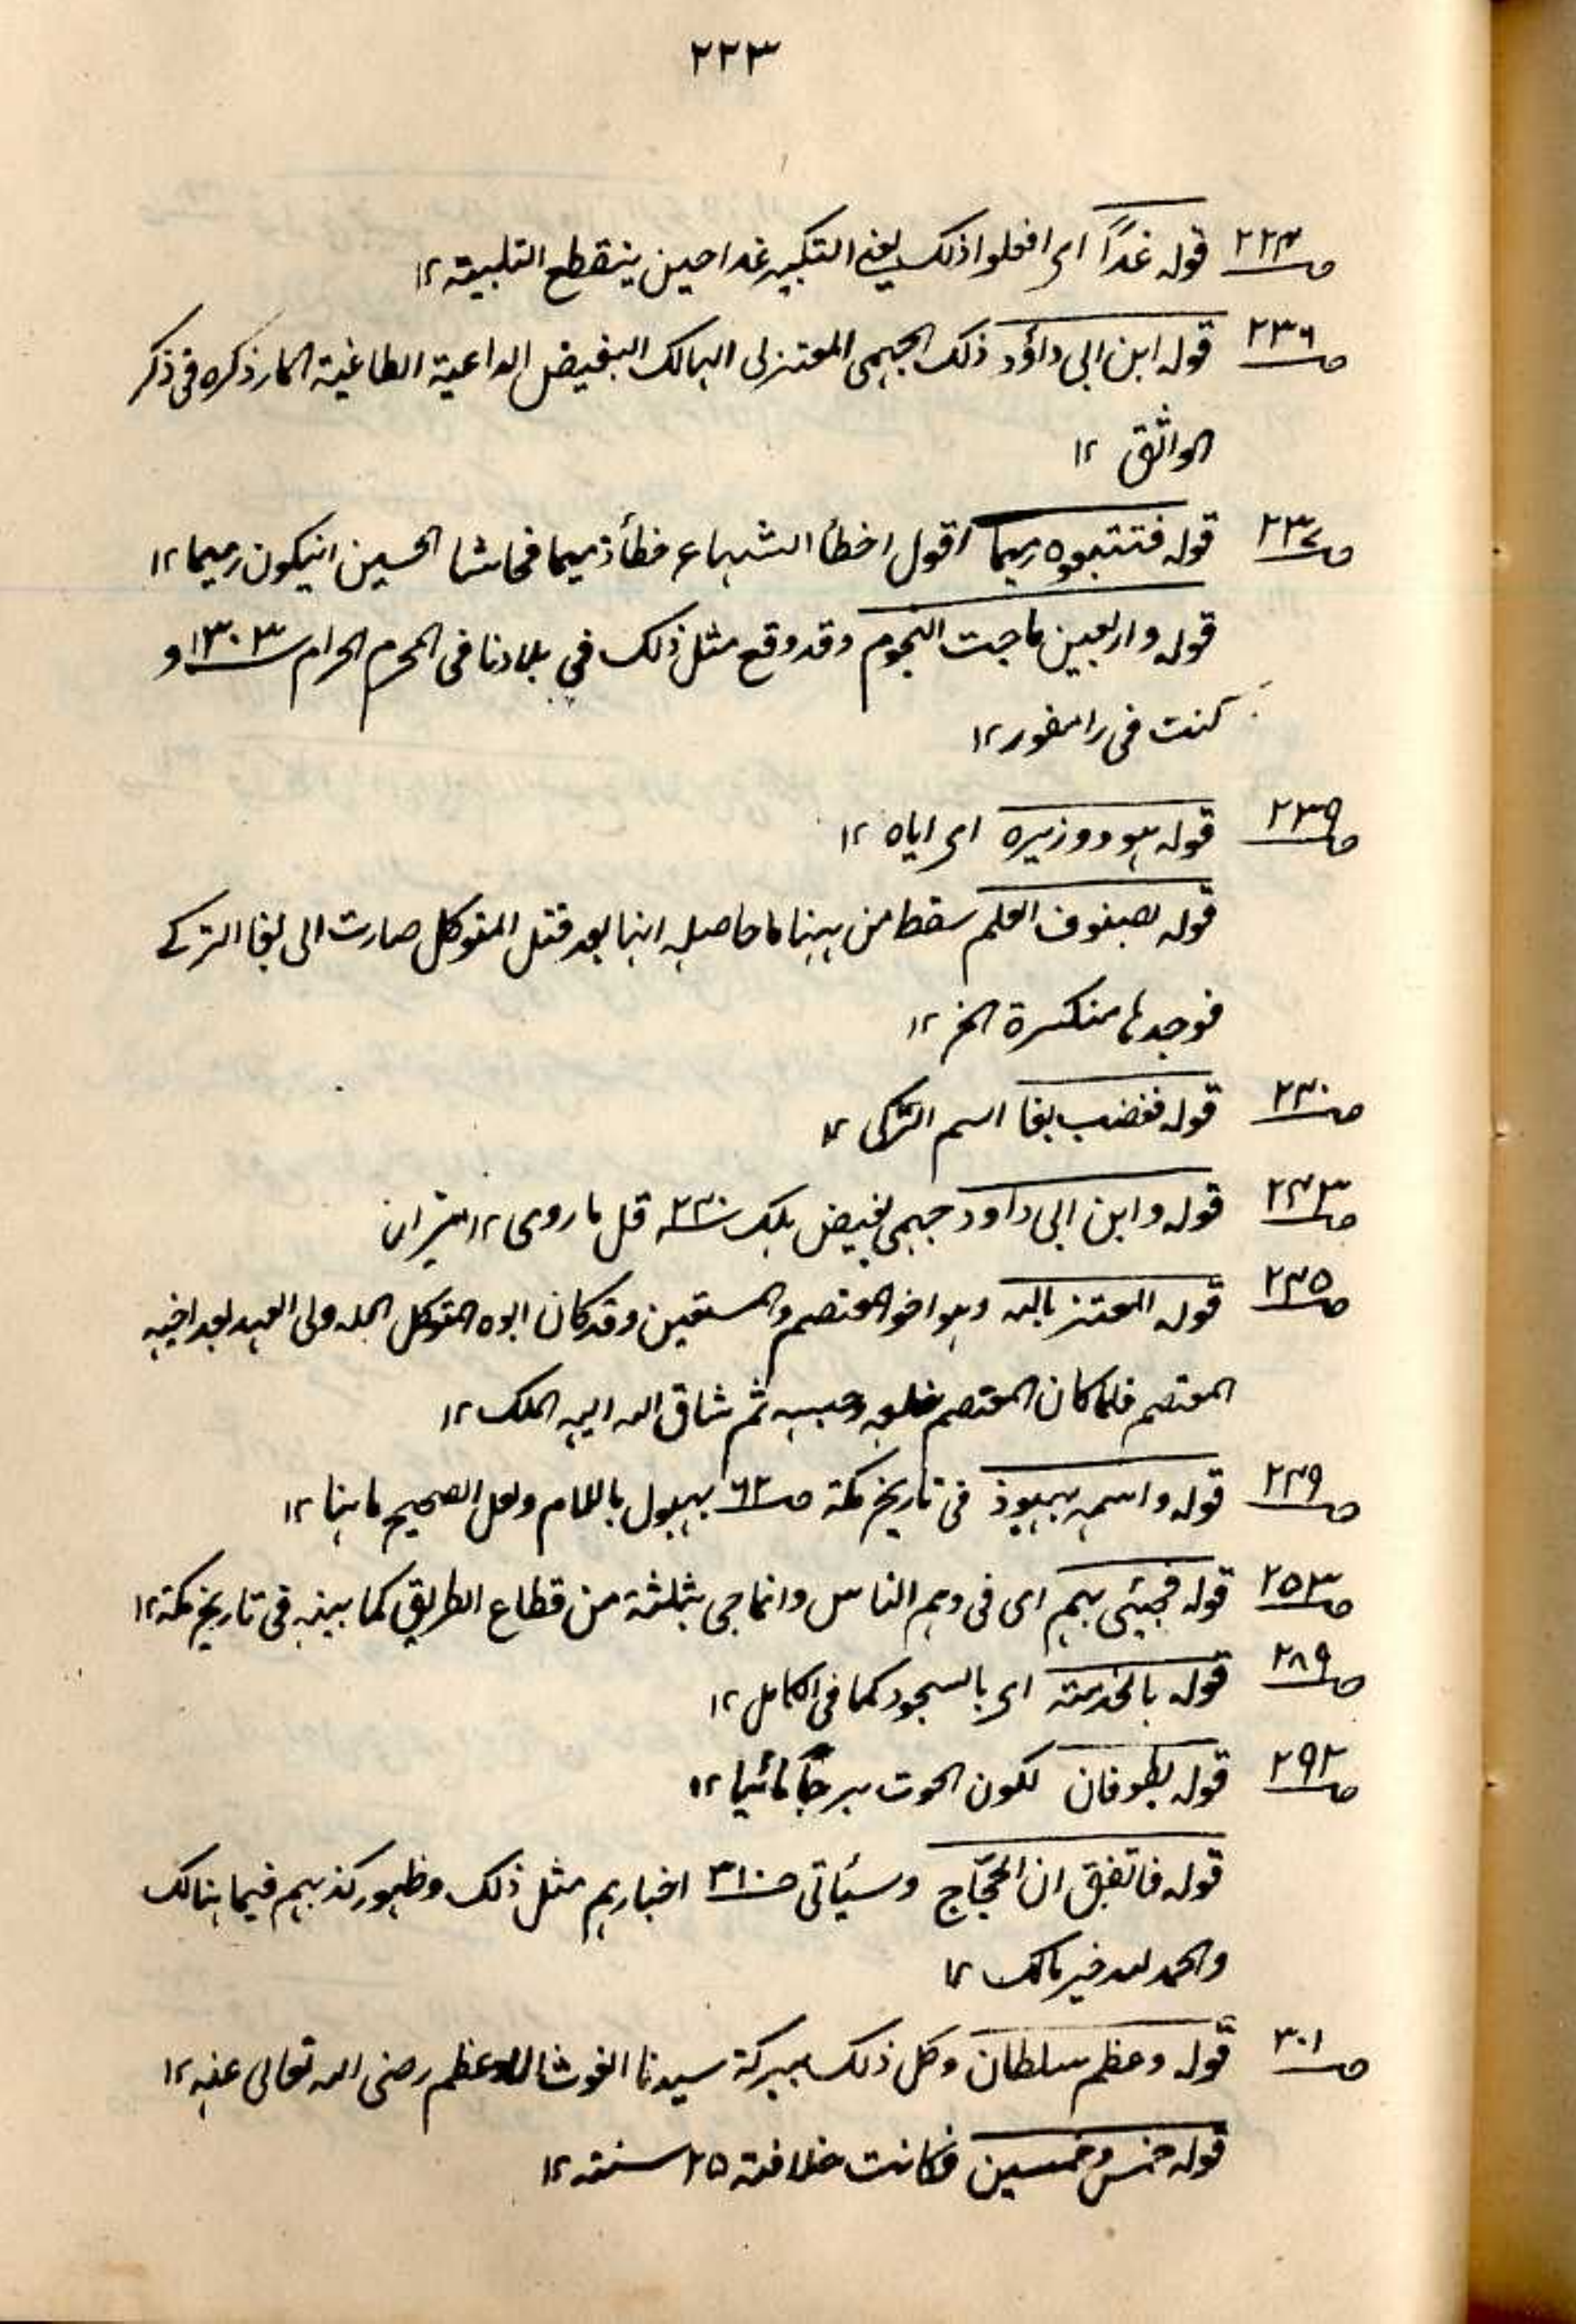 ۲۲۳
ص۲۲۴ قوله غدًا ای افعلوا ذلک یعنی التکبیر غدا حین ینقطع التلبیة ۱۲
ص۲۳۶ قوله ابن ابی داؤد ذلک الجهمی المعتزلی الهالک البغیض الداعیة الطاغیة المار ذکره فی ذکر
الواثق ۱۲
ص۲۳۷ قوله فتتبعوه رمیما اقول اخطأ الشبهاء خطأ ذمیما فحاشا الحسین ان یکون رمیما ۱۲
قوله واربعین ماجت النجوم وقد وقع مثل ذلک فی بلادنا فی المحرم الحرام ۱۳۰۳ و
کنت فی رامفور ۱۲
ص۲۳۹ قوله هو ووزیره ای ایاه ۱۲
قوله بصنوف العلم سقط من ههنا ما حاصله انها بعد قتل المتوکل صارت الی بغا الترکی
فوجدها منکسرة الخ ۱۲
ص۲۴۰ قوله فغضب بغا اسم الترکی ۱۲
ص۲۴۳ قوله وابن ابی داود جهمی بغیض هلک ۲۴۰ قل ما روی ۱۲ میزان
ص۲۴۵ قوله المعتز بالله وهو اخو المعتصم والمستعین وقد کان ابوه المتوکل جعله ولی العهد بعد اخیه
المعتصم فلما کان المعتصم خلعه وحبسه ثم ساق الله الیه الملک ۱۲
ص۲۴۹ قوله واسمه بهبوذ فی تاریخ مکة ص۶۲ بهبول باللام ولعل الصحیح ما هنا ۱۲
ص۲۵۳ قوله فجیئی بهم ای فی وهم الناس وانما جی بثلثة من قطاع الطریق کما بینه فی تاریخ مکة ۱۲
ص۲۸۹ قوله بالخدمة ای بالسجود کما فی الکامل ۱۲
ص۲۹۲ قوله بطوفان لکون الحوت برجًا مائیا ۱۲
قوله فاتفق ان الحجّاج وسیأتی ص۳۱۰ اخبارهم مثل ذلک وظهور کذبهم فیما هنالک
والحمد لله خیر مالک ۱۲
ص۳۰۱ قوله وعظم سلطان وکل ذلک ببرکة سیدنا الغوث الاعظم رضی الله تعالی عنه ۱۲
قوله خمس وخمسین فکانت خلافته ۲۵ سنة ۱۲